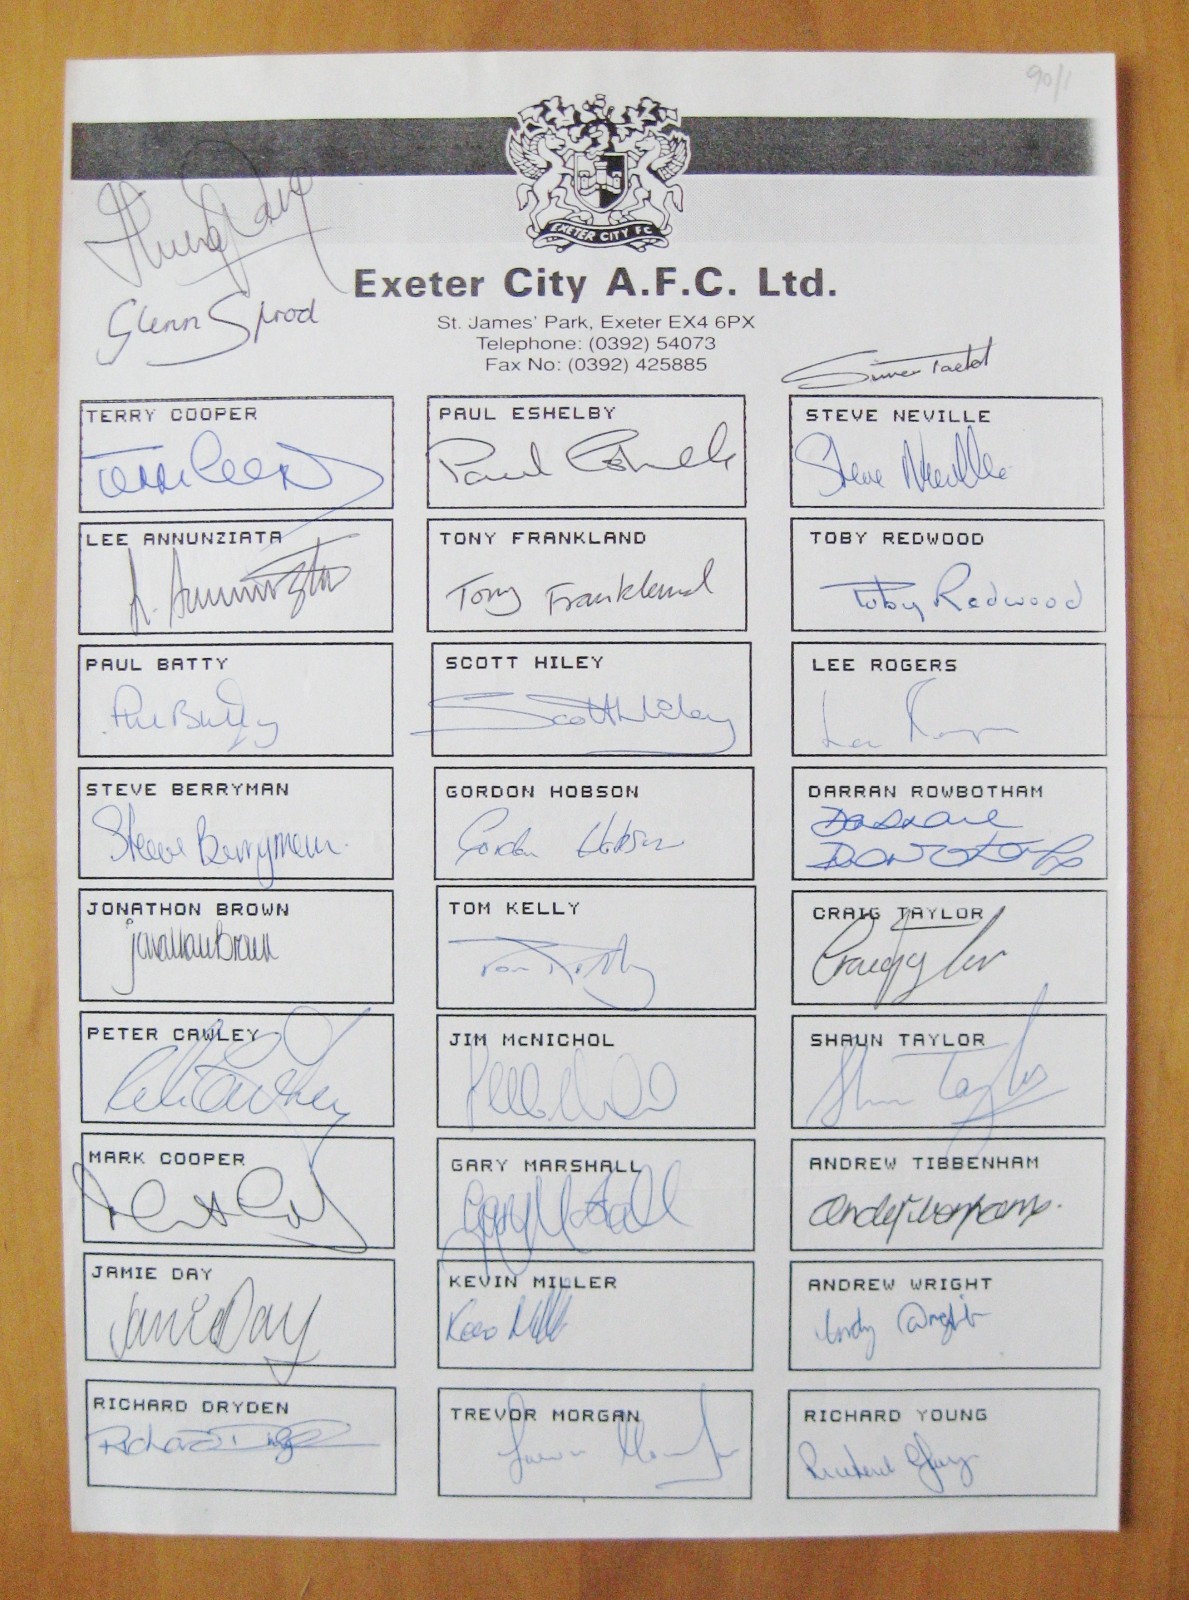 90/1
EXETER CITY FC
Exeter City A.F.C. Ltd.
Glenn Sprod
St. James' Park, Exeter EX4 6PX
Telephone: (0392) 54073
Fax No: (0392) 425885
TERRY COOPER
PAUL ESHELBY
Paul Eshelby
STEVE NEVILLE
Steve Neville
LEE ANNUNZIATA
L. Annunziata
TONY FRANKLAND
Tony Frankland
TOBY REDWOOD
Toby Redwood
PAUL BATTY
SCOTT HILEY
Scott Hiley
LEE ROGERS
STEVE BERRYMAN
Steve Berryman
GORDON HOBSON
Gordon Hobson
DARRAN ROWBOTHAM
JONATHON BROWN
Jonathan Brown
TOM KELLY
Tom Kelly
CRAIG TAYLOR
Craig Taylor
PETER CAWLEY
JIM McNICHOL
SHAUN TAYLOR
Shaun Taylor
MARK COOPER
GARY MARSHALL
ANDREW TIBBENHAM
JAMIE DAY
Jamie Day
KEVIN MILLER
ANDREW WRIGHT
Andy Wright
RICHARD DRYDEN
TREVOR MORGAN
RICHARD YOUNG